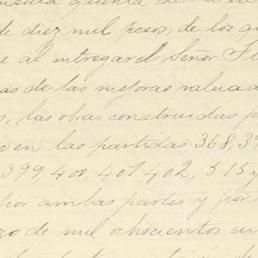 quinta de la
de diez mil pesos, de los qu
e al entregar el Señor Fr
as de las mejoras valuad
s, las obras construidas p
o en las partidas 368, 3
399, 400, 401, 402, 515 y
por ambas partes y por
zo de mil ochocientos